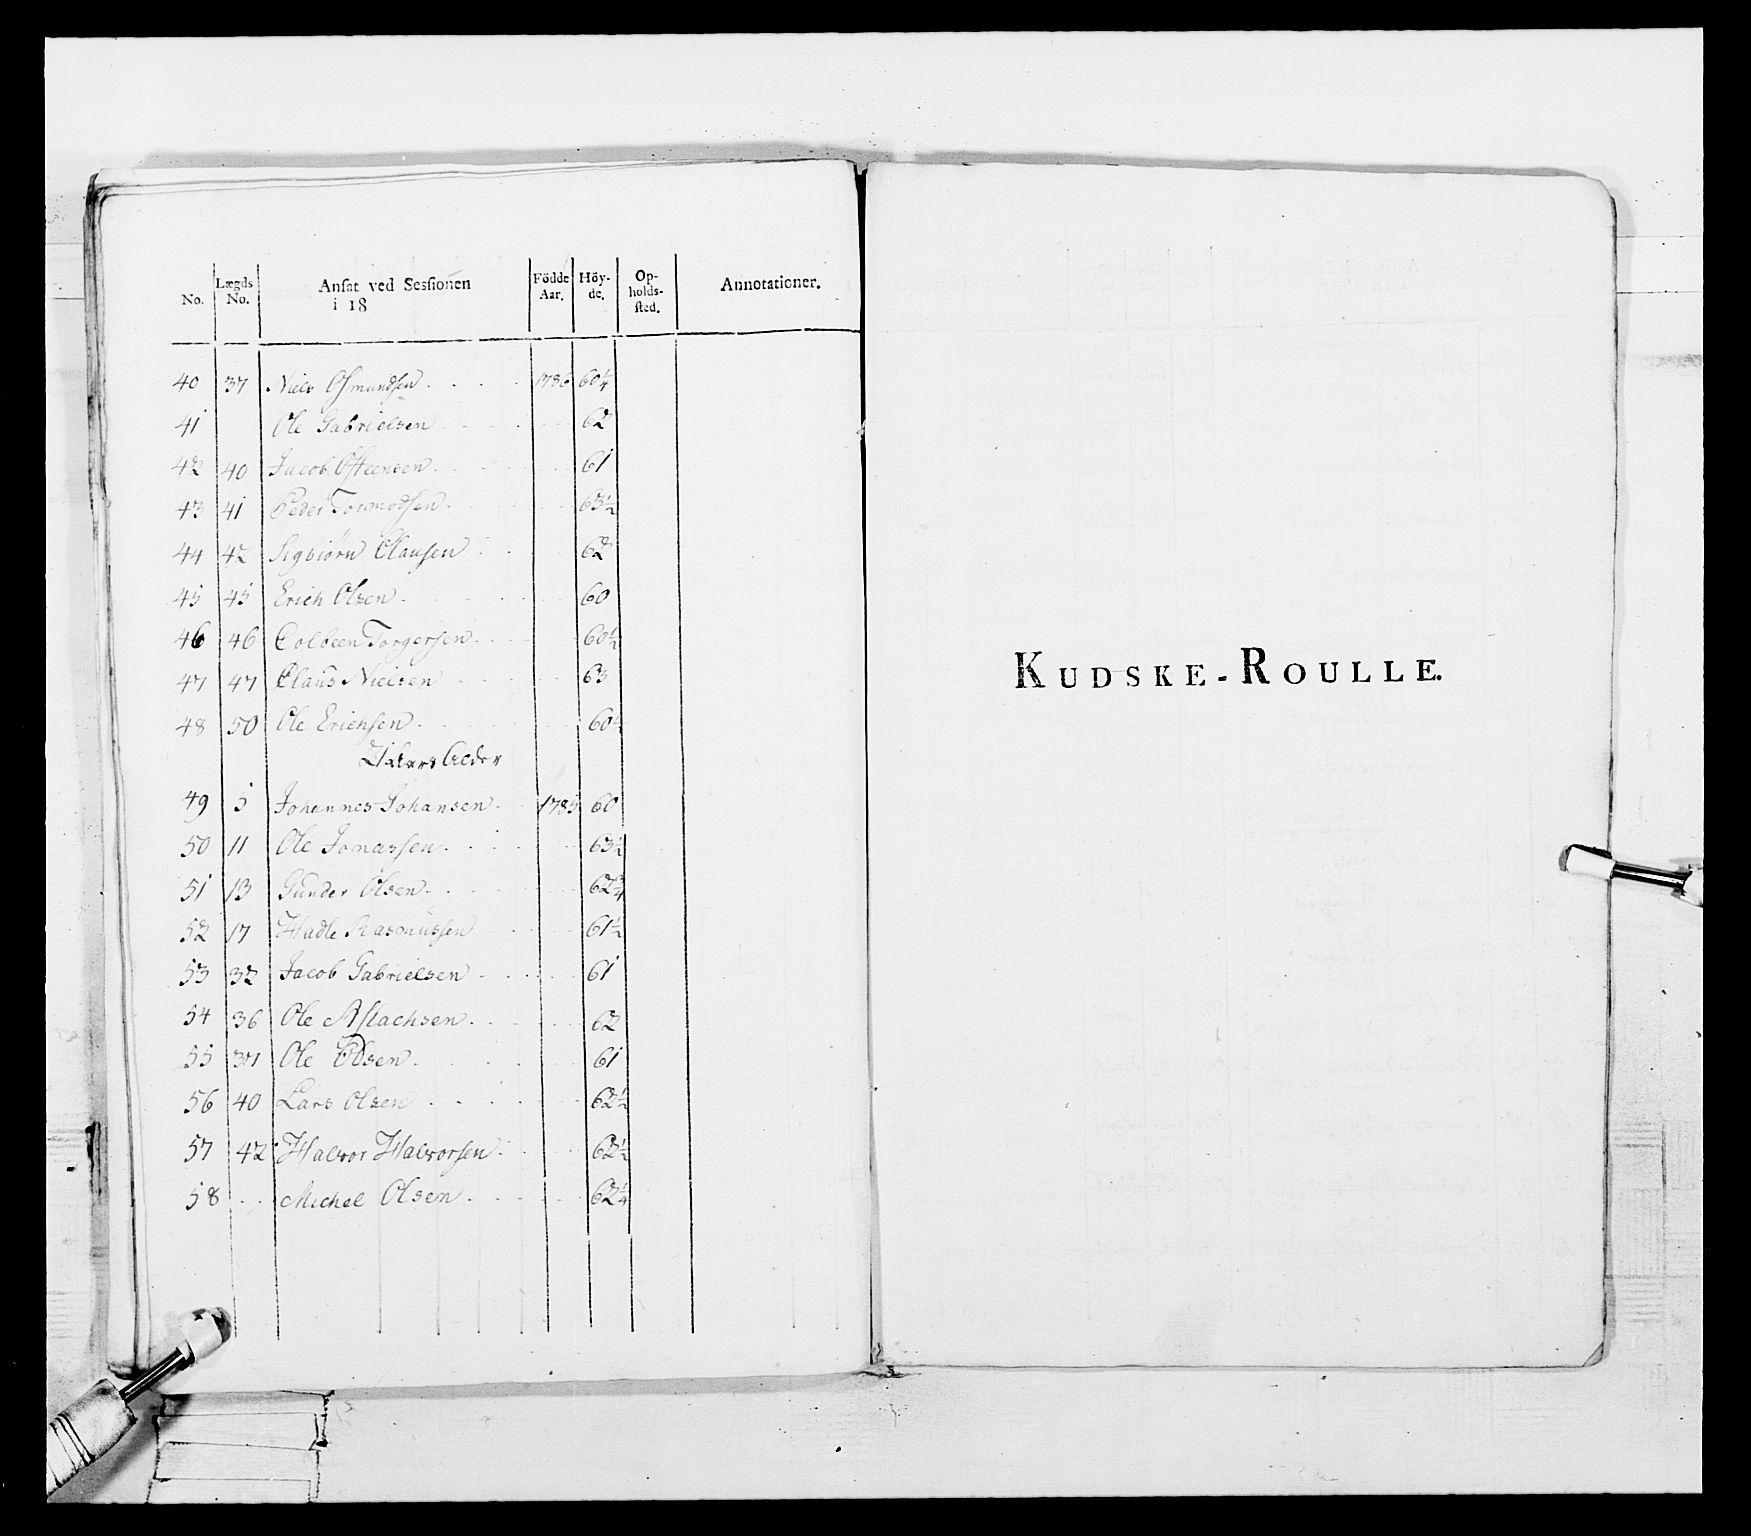 No. Lægds No. Ansat ved Sessionen i 18 Födde Aar. Höyde. Opholds-sted. Annotationer.
40 37 Niels Osmundsen . . . . 1786 60¼
41 Ole Gabrielsen . . . . 62
42 40 Jacob Osteensen . . . . 61
43 41 Peder Tormodsen . . . . 63½
44 42 Sigbiørn Clausen . . . . 62
45 45 Erich Olsen . . . . 60
46 46 Colbeen Torgersen . . . . 60½
47 47 Claus Nielsen . . . . 63
48 50 Ole Erichsen . . . . 60½
21 Aars Alder
49 5 Johannes Johansen . . 1785 60
50 11 Ole Jonassen . . . . 63½
51 13 Gunder Olsen . . . . 62¾
52 17 Hadle Rasmussen . . . . 61½
53 32 Jacob Gabrielsen . . . . 61
54 36 Ole Aslachsen . . . . 62
55 37 Ole Edsen . . . . 61
56 40 Lars Olsen . . . . 62½
57 42 Halvor Halvorsen . . . . 62½
58 . . Michel Olsen . . . . 62¼
KUDSKE-ROULLE.